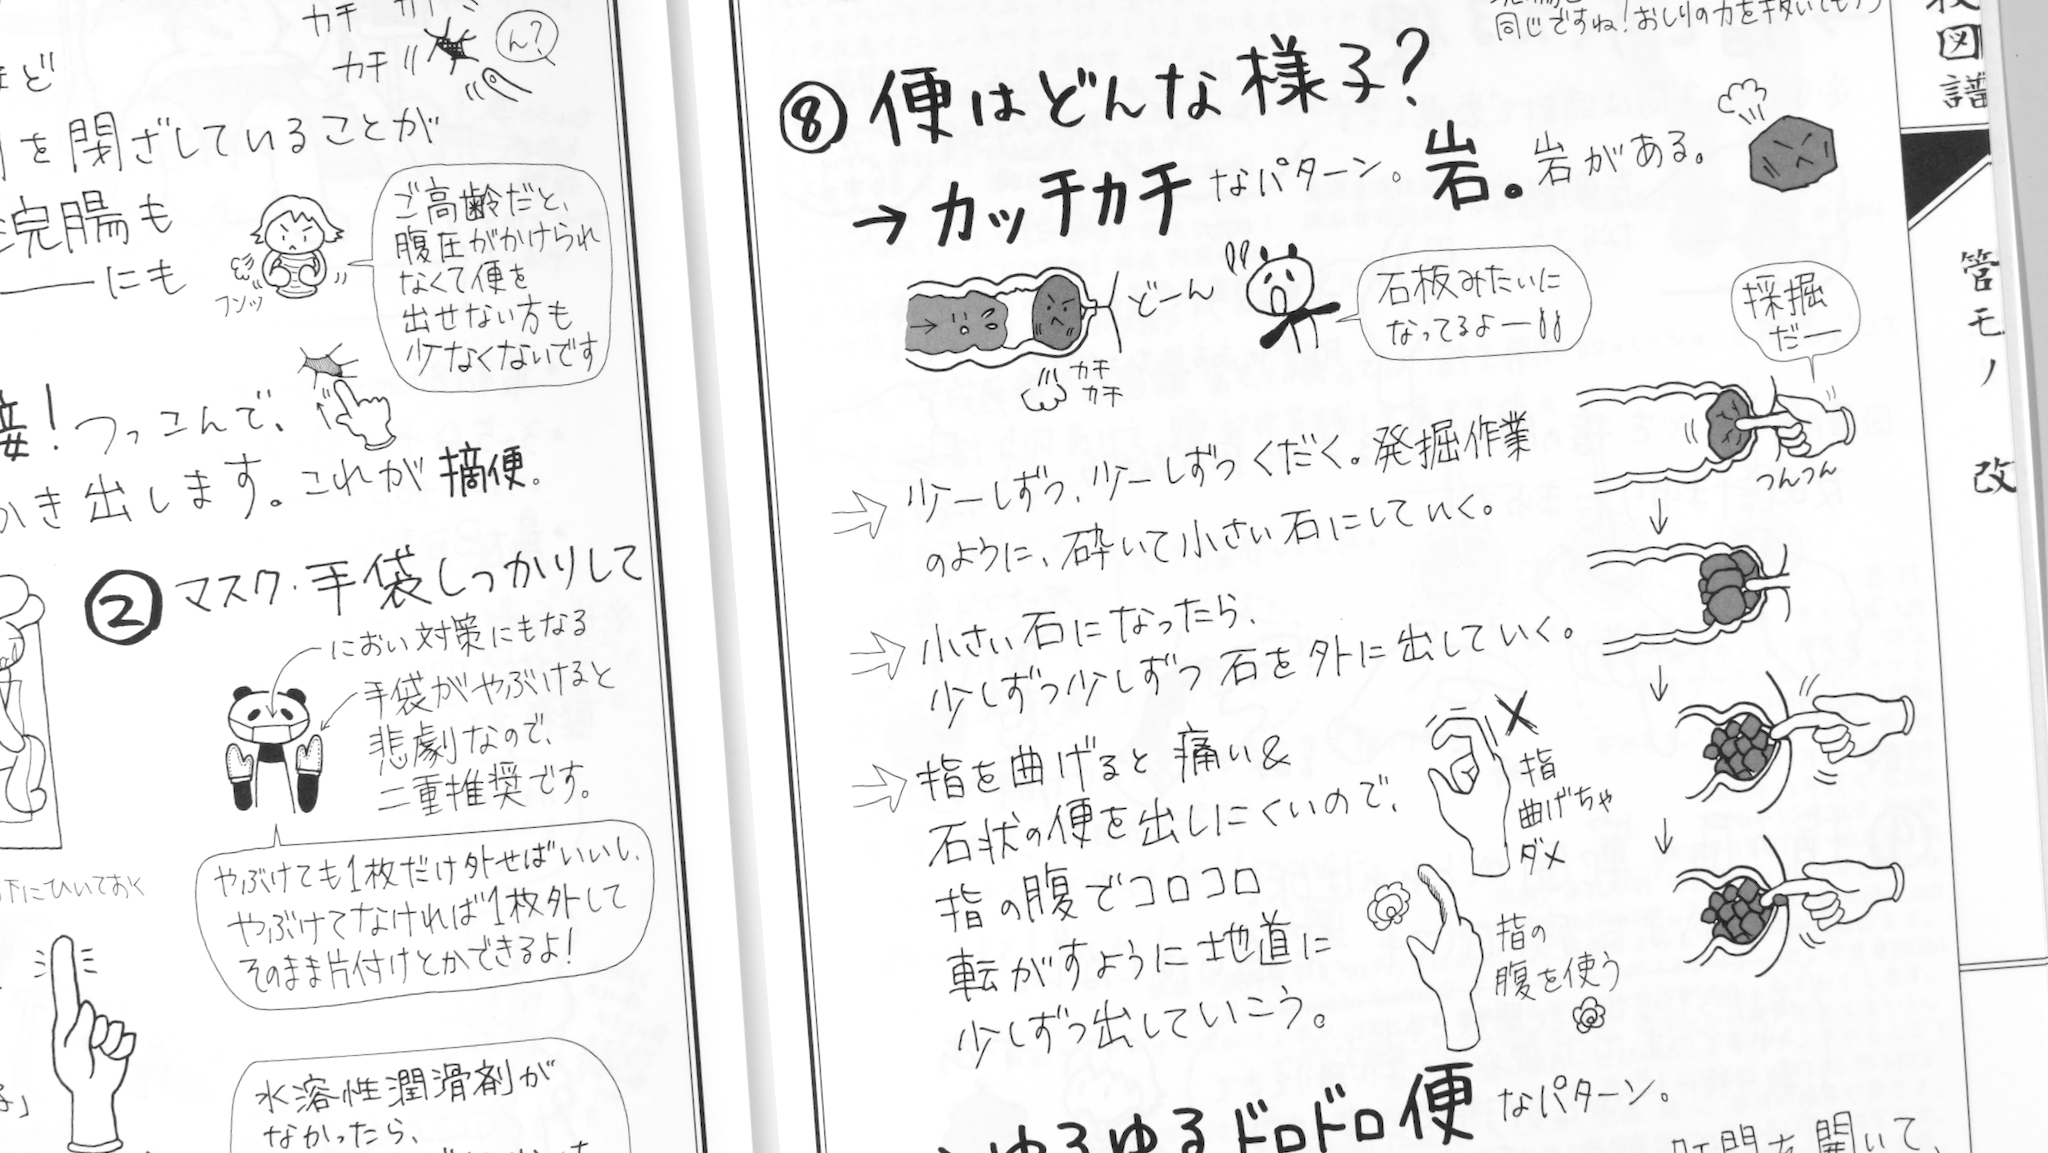 カチ
カチ
ん?
ほど
を閉ざしていることが
浣腸も
にも
フンッ
ご高齢だと、
腹圧がかけられ
なくて便を
出せない方も
少なくないです
接!つっこんで、
かき出します。これが摘便。
② マスク・手袋しっかりして
におい対策にもなる
手袋がやぶけると
悲劇なので、
二重推奨です。
やぶけても1枚だけ外せばいいし、
やぶけてなければ1枚外して
そのまま片付けとかできるよ!
下にひいておく
水溶性潤滑剤が
なかったら、
同じですね!おしりの力を抜いてもらう
⑧ 便はどんな様子?
→カッチカチなパターン。岩。岩がある。
どーん
カチ
カチ
石板みたいに
なってるよー!!
採掘
だー
つんつん
少ーしずつ、少ーしずつくだく。発掘作業
のように、砕いて小さい石にしていく。
小さい石になったら、
少しずつ少しずつ石を外に出していく。
指を曲げると痛い&
石状の便を出しにくいので、
指の腹でコロコロ
転がすように地道に
少しずつ出していこう。
指
曲げちゃ
ダメ
指の
腹を使う
ゆるゆるドロドロ便なパターン。
肛門を開いて、
図譜
管モノ 改